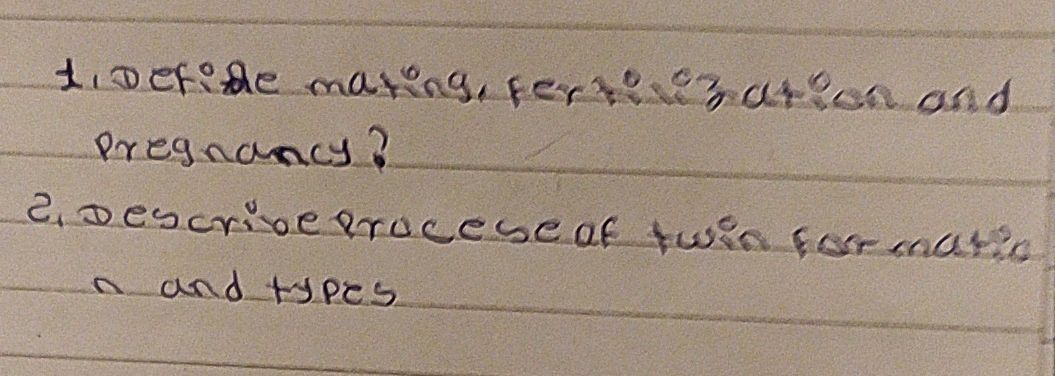 1. Define mating, fertilization and
pregnancy?
2. Describe procese of twin formatio
n and types